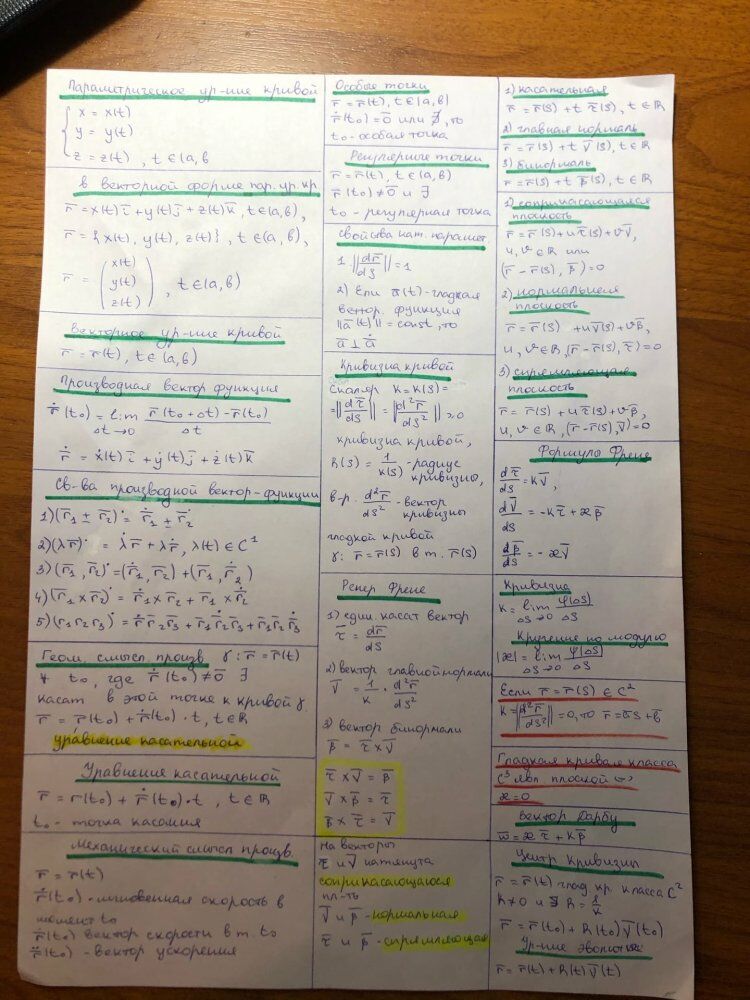 Параметрическое ур-ние кривой
x = x(t)
y = y(t)
z = z(t) , t ∈ (a, b
в векторной форме пар. ур. кр
r̅ = x(t) i̅ + y(t) j̅ + z(t) k̅ , t ∈ (a, b),
r̅ = {x(t), y(t), z(t)} , t ∈ (a, b),
r̅ = ( x(t)
y(t)
z(t) ) , t ∈ (a, b)
Векторное ур-ние кривой
r̅ = r̅(t), t ∈ (a, b)
Производная вектор функции
ṙ̅(t₀) = lim r̅(t₀ + Δt) - r̅(t₀)
Δt→0 Δt
ṙ̅ = ẋ(t) i̅ + ẏ(t) j̅ + ż(t) k̅
Св-ва производной вектор-функции
1) (r̅₁ ± r̅₂)˙ = ṙ̅₁ ± ṙ̅₂
2) (λr̅)˙ = λ̇ r̅ + λ ṙ̅, λ(t) ∈ C¹
3) (r̅₁, r̅₂)˙ = (ṙ̅₁, r̅₂) + (r̅₁, ṙ̅₂)
4) (r̅₁ × r̅₂)˙ = ṙ̅₁ × r̅₂ + r̅₁ × ṙ̅₂
5) (r₁ r₂ r₃)˙ = ṙ̅₁ r̅₂ r̅₃ + r̅₁ ṙ̅₂ r̅₃ + r̅₁ r̅₂ ṙ̅₃
Геом. смысл. произв. γ : r̅ = r̅(t)
∀ t₀, где ṙ̅(t₀) ≠ 0̅ ∃
касат в этой точке к кривой γ.
r̅ = r̅(t₀) + ṙ̅(t₀) · t, t ∈ R
уравнение касательной
Уравнения касательной
r̅ = r(t₀) + ṙ̅(t₀) · t , t ∈ R
t₀ - точка касания
Механический смысл произв.
r̅ = r̅(t)
ṙ̅(t₀) - мгновенная скорость в
момент t₀
ṙ̅(t₀) вектор скорости в т. t₀
r̈̅(t₀) - вектор ускорения
Особые точки
r̅ = r̅(t), t ∈ (a, b)
ṙ̅(t₀) = 0̅ или ∄, то
t₀ - особая точка
Регулярные точки
r̅ = r̅(t), t ∈ (a, b)
r̅(t₀) ≠ 0̅ и ∃
t₀ - регулярная точка
Свойства нат. парамет.
1. ||dr̅/ds|| = 1
2) Если a̅(t) - гладкая
вектор. функция
||a̅(t)|| = const, то
a̅ ⊥ ȧ̅
Кривизна кривой
Скаляр k = k(s) =
= ||dτ̅/ds|| = ||d²r̅/ds²|| ≥ 0
кривизна кривой,
R(s) = 1/k(s) - радиус
кривизны,
в-р. d²r̅/ds² - вектор
кривизны
гладкой кривой
γ: r̅ = r̅(s) в т. r̅(s)
Репер Френе
1) един. касат вектор
τ̅ = dr̅/ds
2) вектор главной нормали
ν̅ = 1/k · d²r̅/ds²
3) вектор бинормали
β̅ = τ̅ × ν̅
τ̅ × ν̅ = β̅
ν̅ × β̅ = τ̅
β̅ × τ̅ = ν̅
на векторы
τ̅ и ν̅ натянута
соприкасающаяся
пл-ть
ν̅ и β̅ - нормальная
τ̅ и β̅ - спрямляющая
1) касательная
r̅ = r̅(s) + t τ̅(s), t ∈ R
2) главная нормаль
r̅ = r̅(s) + t ν̅(s), t ∈ R
3) бинормаль
r̅ = r̅(s) + t β̅(s), t ∈ R
1) соприкасающаяся
плоскость
r̅ = r̅(s) + u τ̅(s) + v ν̅,
u, v ∈ R или
(r̅ - r̅(s), β̅) = 0
2) нормальная
плоскость
r̅ = r̅(s) + u ν̅(s) + v β̅,
u, v ∈ R, (r̅ - r̅(s), τ̅) = 0
3) спрямляющая
плоскость
r̅ = r̅(s) + u τ̅(s) + v β̅,
u, v ∈ R, (r̅ - r̅(s), ν̅) = 0
Формулы Френе
dτ̅/ds = k ν̅,
dν̅/ds = -k τ̅ + æ β̅
dβ̅/ds = -æ ν̅
Кривизна
k = lim φ(Δs)
Δs→0 Δs
Кручение по модулю
|æ| = lim φ(Δs)
Δs→0 Δs
Если r̅ = r̅(s) ∈ C²
k = ||d²r̅/ds²|| = 0, то r̅ = a̅s + b̅
Гладкая кривая класса
C³ явл. плоской ⇔
æ = 0
Вектор Дарбу
ω̅ = æ τ̅ + k β̅
Центр кривизны
r̅ = r̅(t) глад кр. класса C²
k ≠ 0 и ∃ R = 1/k
r̅ = r̅(t₀) + R(t₀) ν̅(t₀)
Ур-ние эволюты
r̅ = r̅(t) + R(t) ν̅(t)